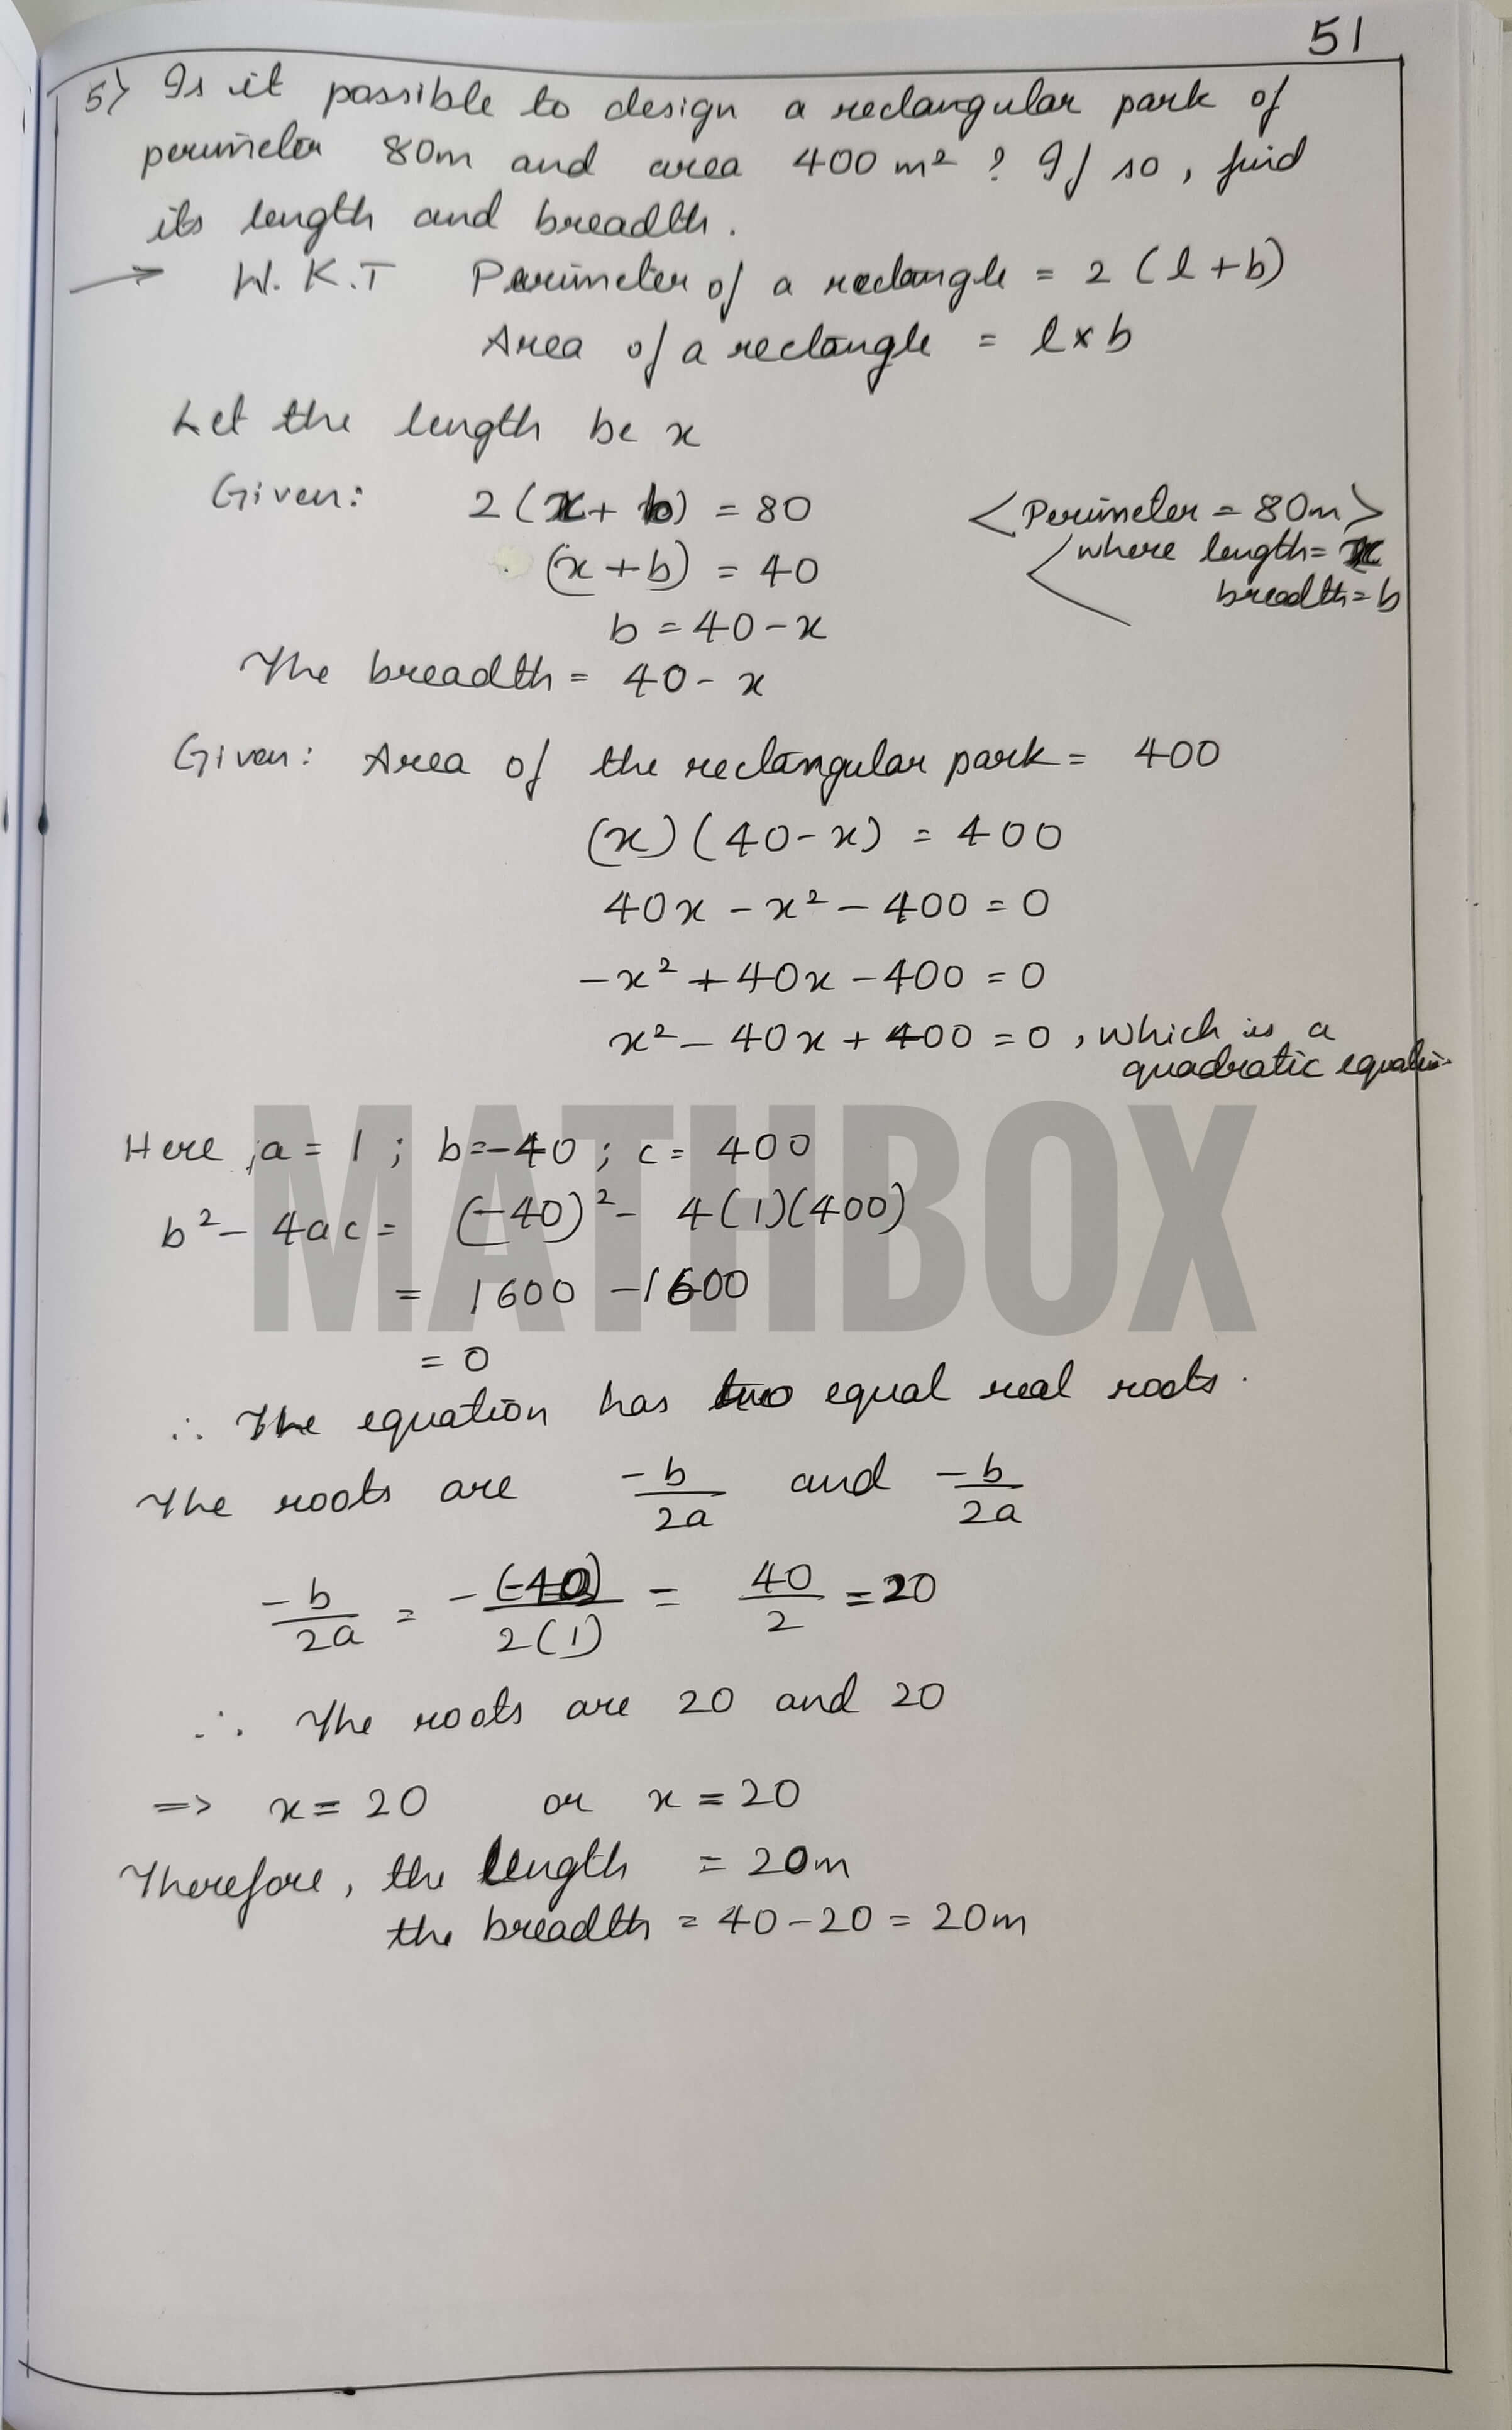 51
5) Is it possible to design a rectangular park of
perimeter 80m and area 400 m² ? If so, find
its length and breadth.
→ W.K.T Perimeter of a rectangle = 2 (l+b)
Area of a rectangle = l×b
Let the length be x
Given: 2(x+b) = 80 <Perimeter = 80m>
(x+b) = 40 <where length = x
b = 40-x breadth = b
The breadth = 40-x
Given: Area of the rectangular park = 400
(x)(40-x) = 400
40x - x² - 400 = 0
-x² + 40x - 400 = 0
x² - 40x + 400 = 0, which is a
quadratic equation
MATHBOX
Here, a = 1 ; b=-40 ; c = 400
b² - 4ac = (-40)² - 4(1)(400)
= 1600 - 1600
= 0
∴ The equation has two equal real roots.
The roots are -b/2a and -b/2a
-b/2a = -(-40)/2(1) = 40/2 = 20
∴ The roots are 20 and 20
=> x = 20 or x = 20
Therefore, the length = 20m
the breadth = 40-20 = 20m